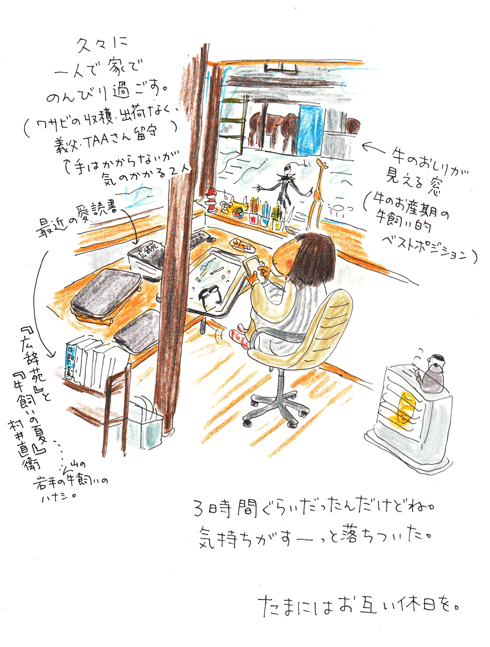 久々に
一人で家で
のんびり過ごす。
(ワサビの収穫・出荷なく、
義父・TAAさん留守)
↑手はかからないが
気のかかる2人
最近の愛読書
『広辞苑』と
『牛飼いの夏』
村井直衛
山の
岩手の牛飼いの
ハナシ。
牛のおしりが
見える窓
(牛のお産期の
牛飼い的
ベストポジション)
3時間ぐらいだったんだけどね。
気持ちがすーっと落ちついた。
たまにはお互い休日を。